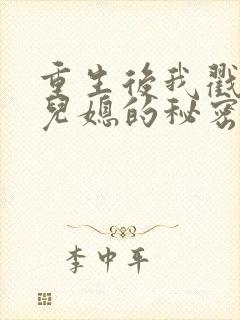 重生後我戳
兒媳的秘密
李中平